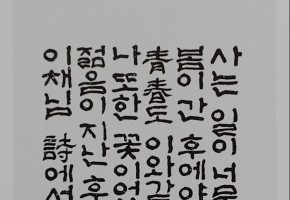 사는 일이 너무
봄이 간 후에야
靑春도 이와 같
나 또한 꽃이었
젊음이 지난 후
이채님 詩에서